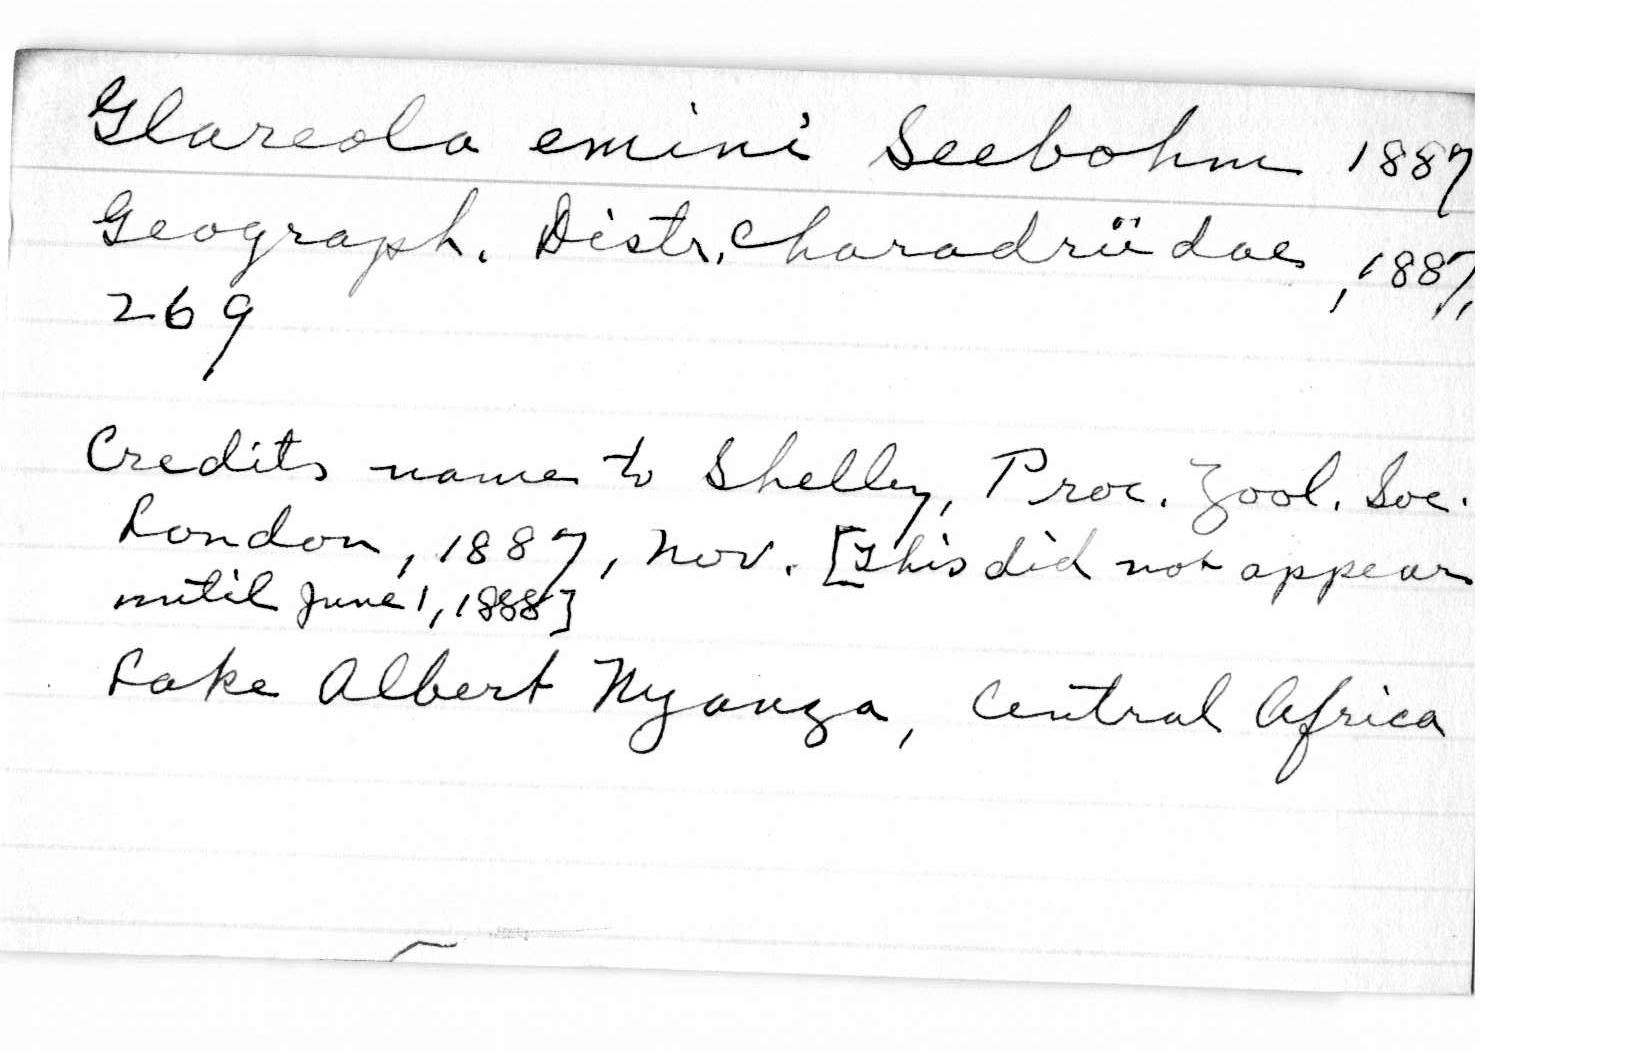 Glareola emini Seebohm 1887
Geograph. Distr. Charadriidae, 1887,
269
Credits name to Shelley, Proc. Zool. Soc.
London, 1887, Nov. [This did not appear
until June 1, 1888]
Lake Albert Nyanza, Central Africa